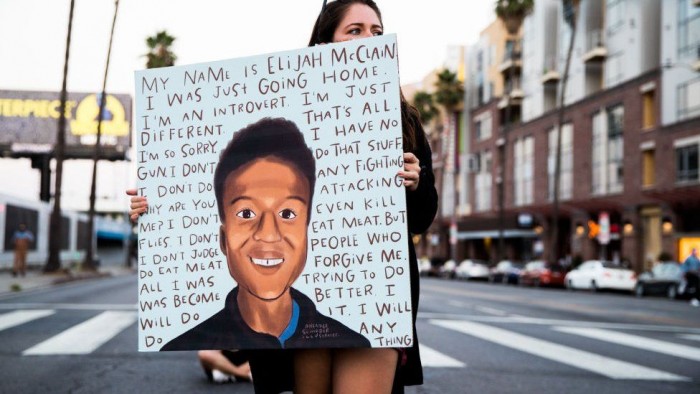 MY NAME IS ELIJAH McCLAIN.
I WAS JUST GOING HOME.
I'M AN INTROVERT. I'M JUST
DIFFERENT. THAT'S ALL.
I'M SO SORRY. I HAVE NO
GUN. I DON'T DO THAT STUFF.
I DON'T DO ANY FIGHTING
WHY ARE YOU ATTACKING
ME? I DON'T EVEN KILL
FLIES. I DON'T EAT MEAT. BUT
I DON'T JUDGE PEOPLE WHO
DO EAT MEAT FORGIVE ME.
ALL I WAS TRYING TO DO
WAS BECOME BETTER. I
WILL DO IT, I WILL
DO ANY
THING
TERPIECE